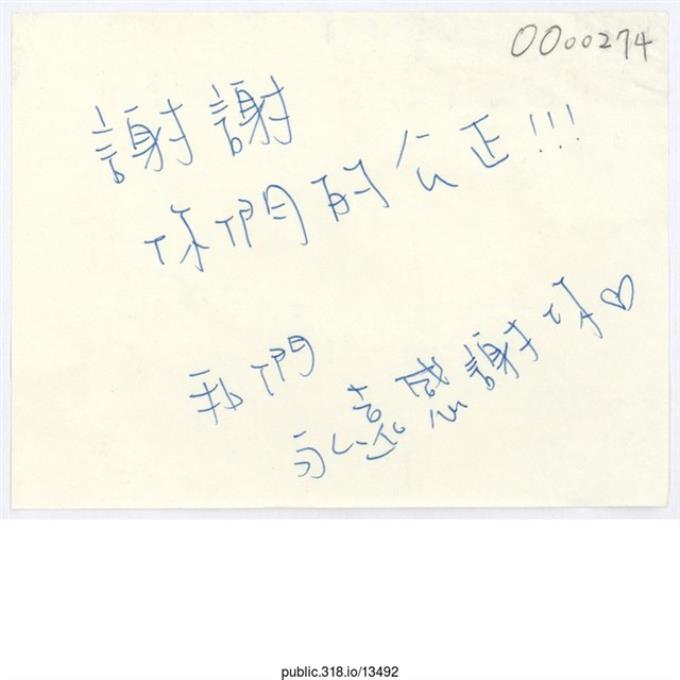 0000274
謝謝
你們的公正!!!
我們
永遠感謝你♡
public.318.io/13492